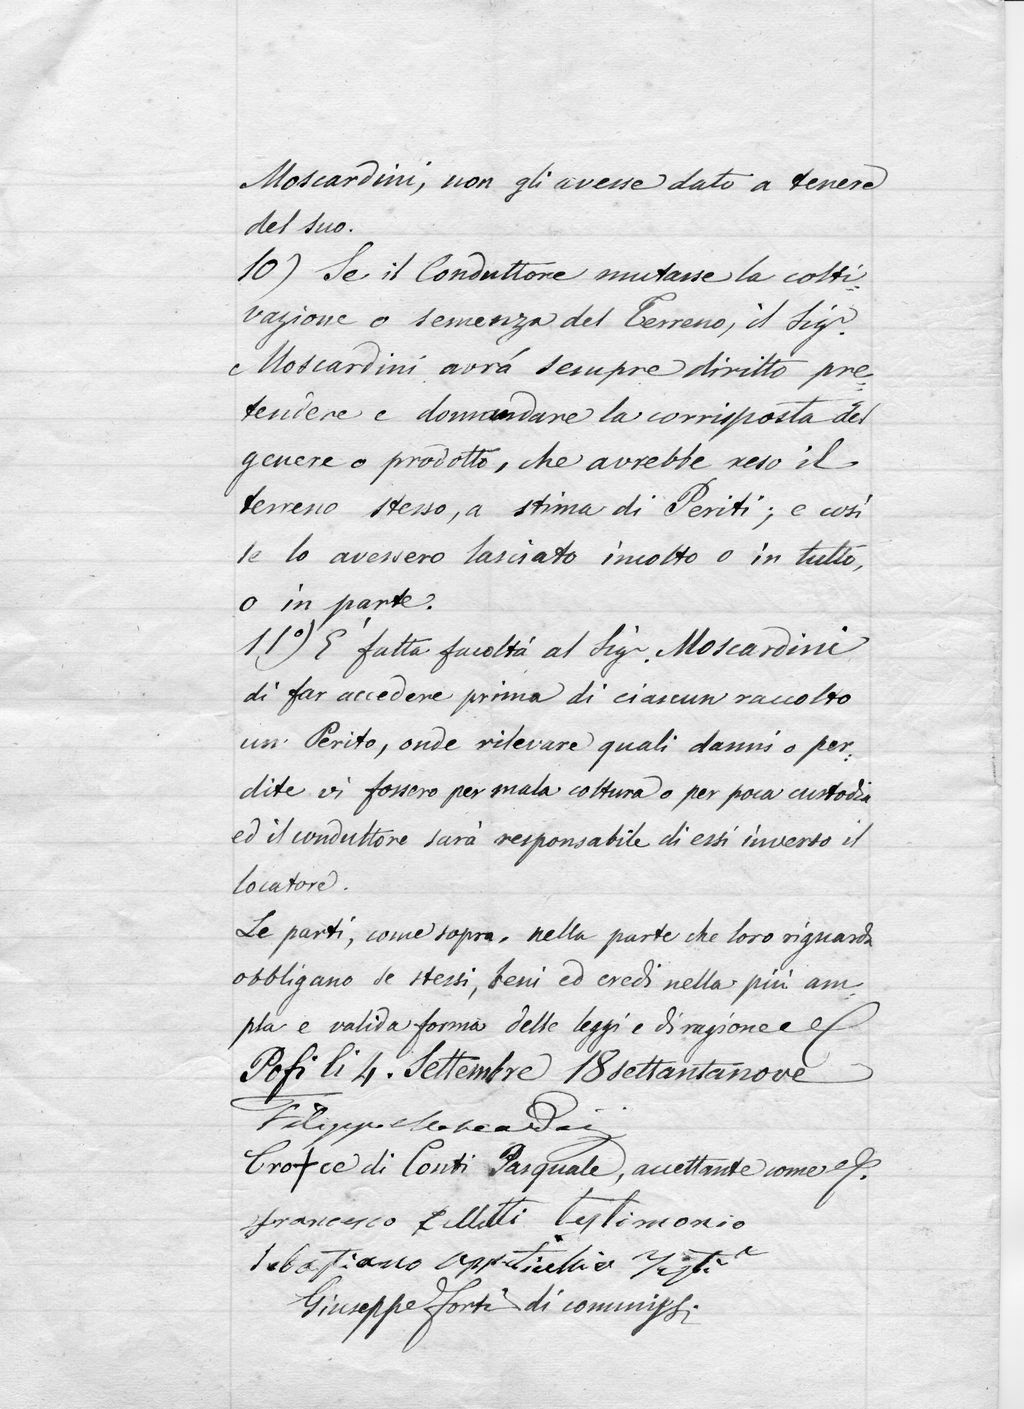 Moscardini, non gli avesse dato a tenere
del suo.
10) Se il Conduttore mutasse la colti-
vazione o semenza del Terreno, il Sigr.
Moscardini avrá sempre diritto pre-
tendere e domandare la corrisposta del
genere o prodotto, che avrebbe reso il
terreno stesso, a stima di Periti; e così
se lo avessero lasciato incolto o in tutto,
o in parte.
11º) E' fatta facoltá al Sigr. Moscardini
di far accedere prima di ciascun raccolto
un Perito, onde rilevare quali danni o per:
dite vi fossero per mala coltura o per poca custodia
ed il conduttore sarà responsabile di essi inverso il
locatore.
Le parti, come sopra, nella parte che loro riguarda
obbligano se stessi, beni ed eredi nella più am-
pla e valida forma delle leggi e di ragione e
Pofi li 4. Settembre 18settantanove
Filippo Moscardini
Cro+ce di Conti Pasquale, accettante come
Francesco testimonio
Sebastiano
Giuseppe Forti di commissi